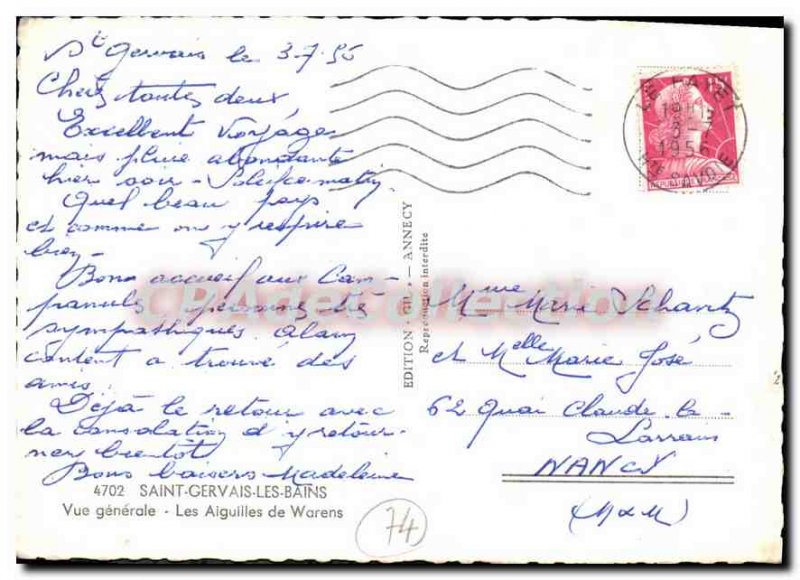 St Gervais le 3.7.56
Chers toutes deux,
Excellent voyage
mais pluie abondante
hier soir -
Quel beau pays
et comme on y respire
bien -
Bons accueil aux Cam-
panules personnes très
sympathiques. Alain
content a trouvé des
amis.
Déjà le retour avec
la consolation d'y retour-
ner bientôt
Bons baisers Madeleine
4702 SAINT-GERVAIS-LES-BAINS
Vue générale - Les Aiguilles de Warens
74
EDITION « GIL » — ANNECY
Reproduction interdite
LE FAYET
1956
HTE SAVOIE
Mme Marie Schantz
et Melle Marie José
62 Quai Claude le
Lorrain
NANCY
(M & M)
CPADeCollection